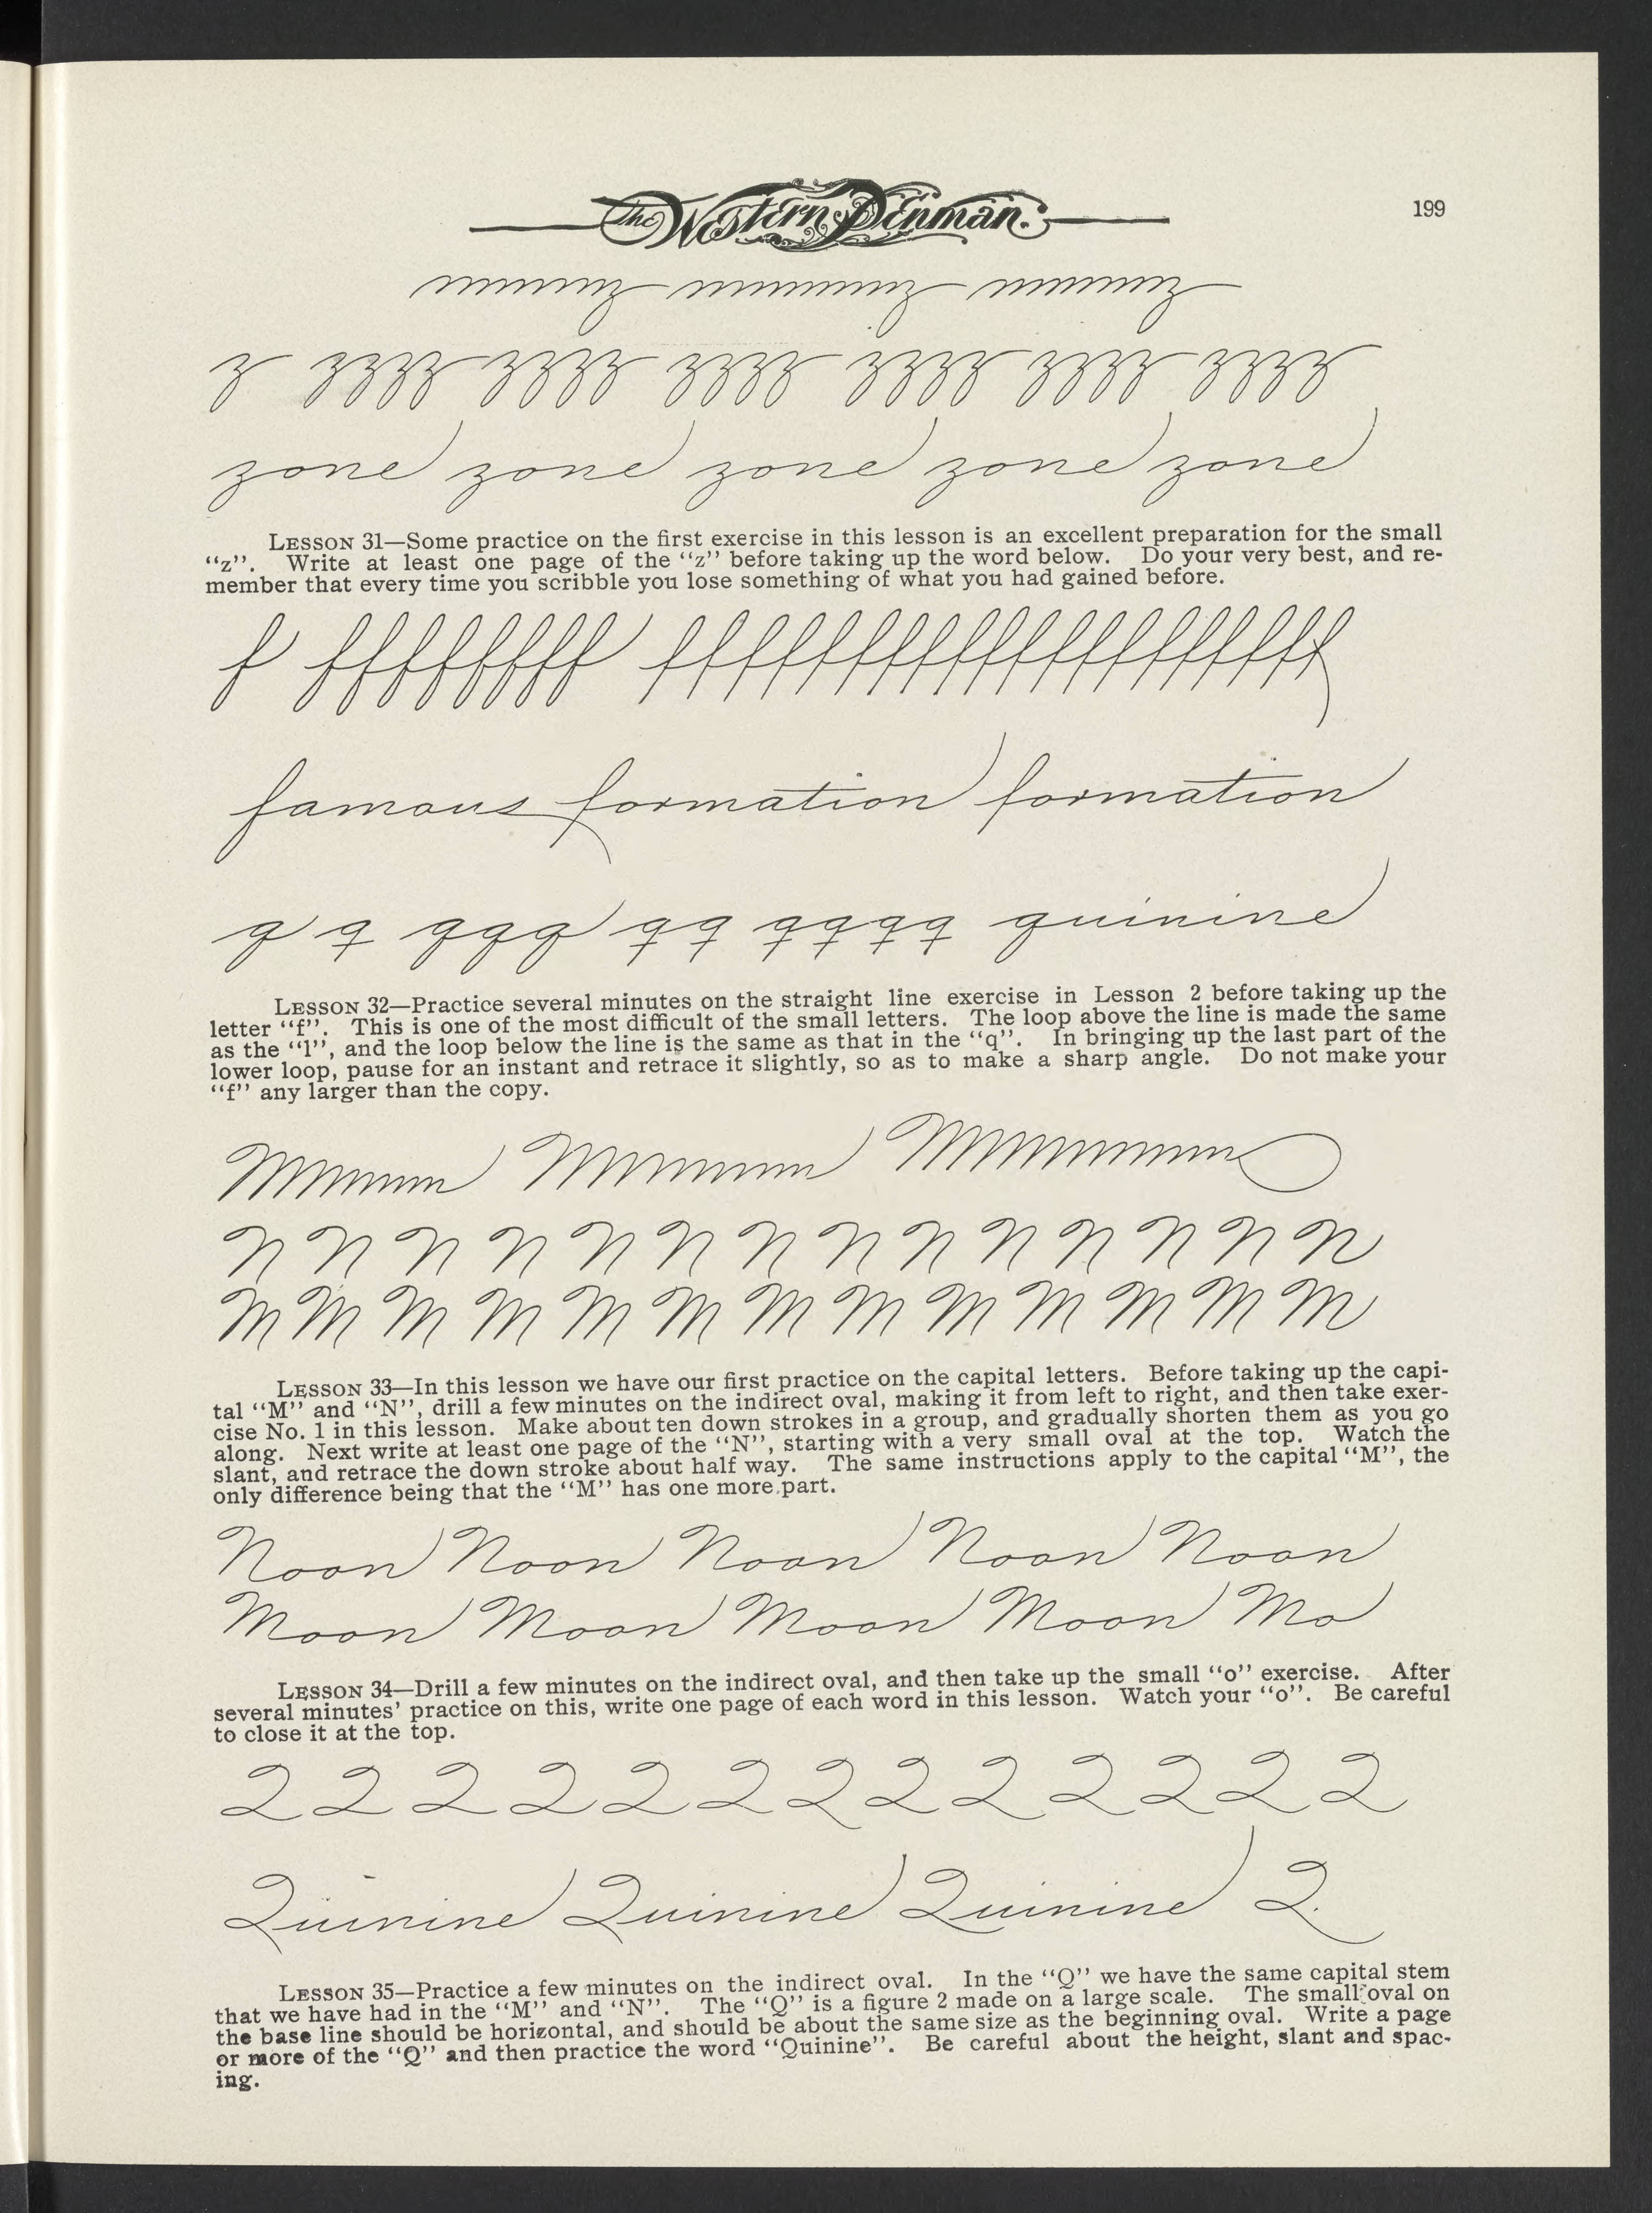 The Western Penman.
199
z zzzz zzzz zzzz zzzz zzzz zzzz
zone zone zone zone zone
LESSON 31—Some practice on the first exercise in this lesson is an excellent preparation for the small
“z”. Write at least one page of the “z” before taking up the word below. Do your very best, and re-
member that every time you scribble you lose something of what you had gained before.
famous formation formation
q q qqq qq qqqq quinine
LESSON 32—Practice several minutes on the straight line exercise in Lesson 2 before taking up the
letter “f”. This is one of the most difficult of the small letters. The loop above the line is made the same
as the “l”, and the loop below the line is the same as that in the “q”. In bringing up the last part of the
lower loop, pause for an instant and retrace it slightly, so as to make a sharp angle. Do not make your
“f” any larger than the copy.
N N N N N N N N N N N N N N
M M M M M M M M M M M M M
LESSON 33—In this lesson we have our first practice on the capital letters. Before taking up the capi-
tal “M” and “N”, drill a few minutes on the indirect oval, making it from left to right, and then take exer-
cise No. 1 in this lesson. Make about ten down strokes in a group, and gradually shorten them as you go
along. Next write at least one page of the “N”, starting with a very small oval at the top. Watch the
slant, and retrace the down stroke about half way. The same instructions apply to the capital “M”, the
only difference being that the “M” has one more part.
Noon Noon Noon Noon Noon
Moon Moon Moon Moon Mo
LESSON 34—Drill a few minutes on the indirect oval, and then take up the small “o” exercise. After
several minutes’ practice on this, write one page of each word in this lesson. Watch your “o”. Be careful
to close it at the top.
Q Q Q Q Q Q Q Q Q Q Q Q Q
Quinine Quinine Quinine Q.
LESSON 35—Practice a few minutes on the indirect oval. In the “Q” we have the same capital stem
that we have had in the “M” and “N”. The “Q” is a figure 2 made on a large scale. The small oval on
the base line should be horizontal, and should be about the same size as the beginning oval. Write a page
or more of the “Q” and then practice the word “Quinine”. Be careful about the height, slant and spac-
ing.